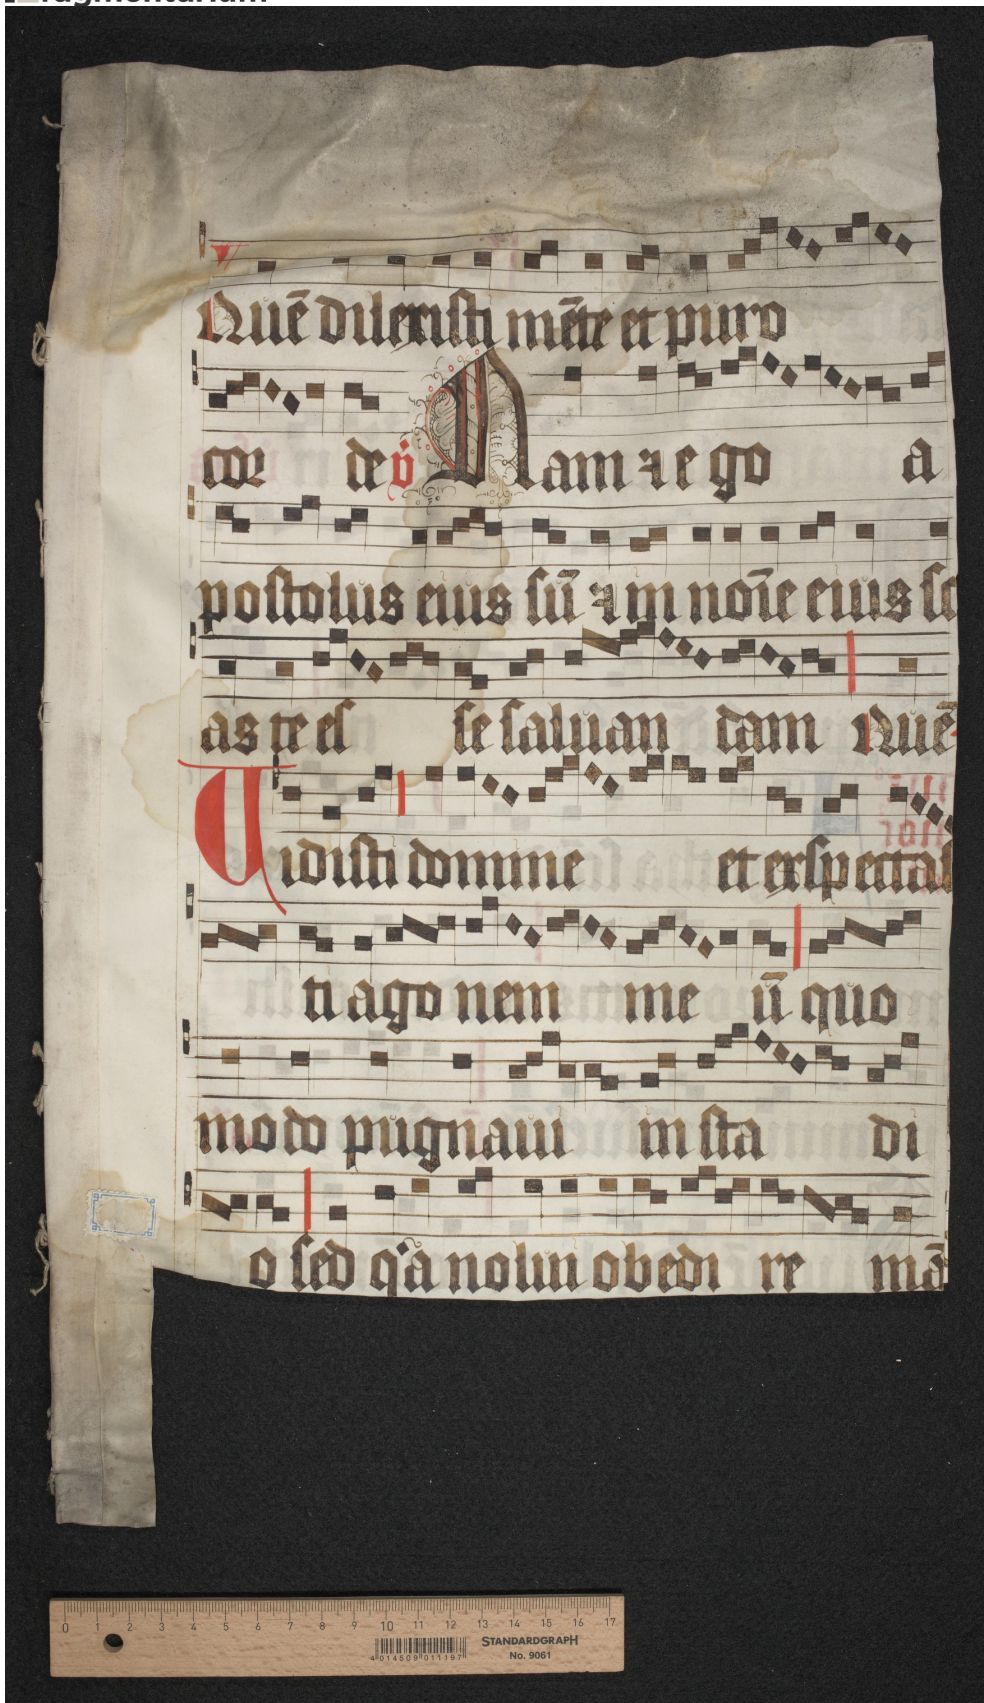 Quē dilexisti mēte et puro
cor de v̄ Nam ⁊ e go a
postolus eius sū ⁊ in noīe eius sc
as te es se saluan dam Quē
Uidisti domine et exspectas
ti ago nem me ū quo
modo pugnaui in sta di
o sed qͥa nolui obedi re mā
0 1 2 3 4 5 6 7 8 9 10 11 12 13 14 15 16 17
4 014509 011197
STANDARDGRAPH
No. 9061